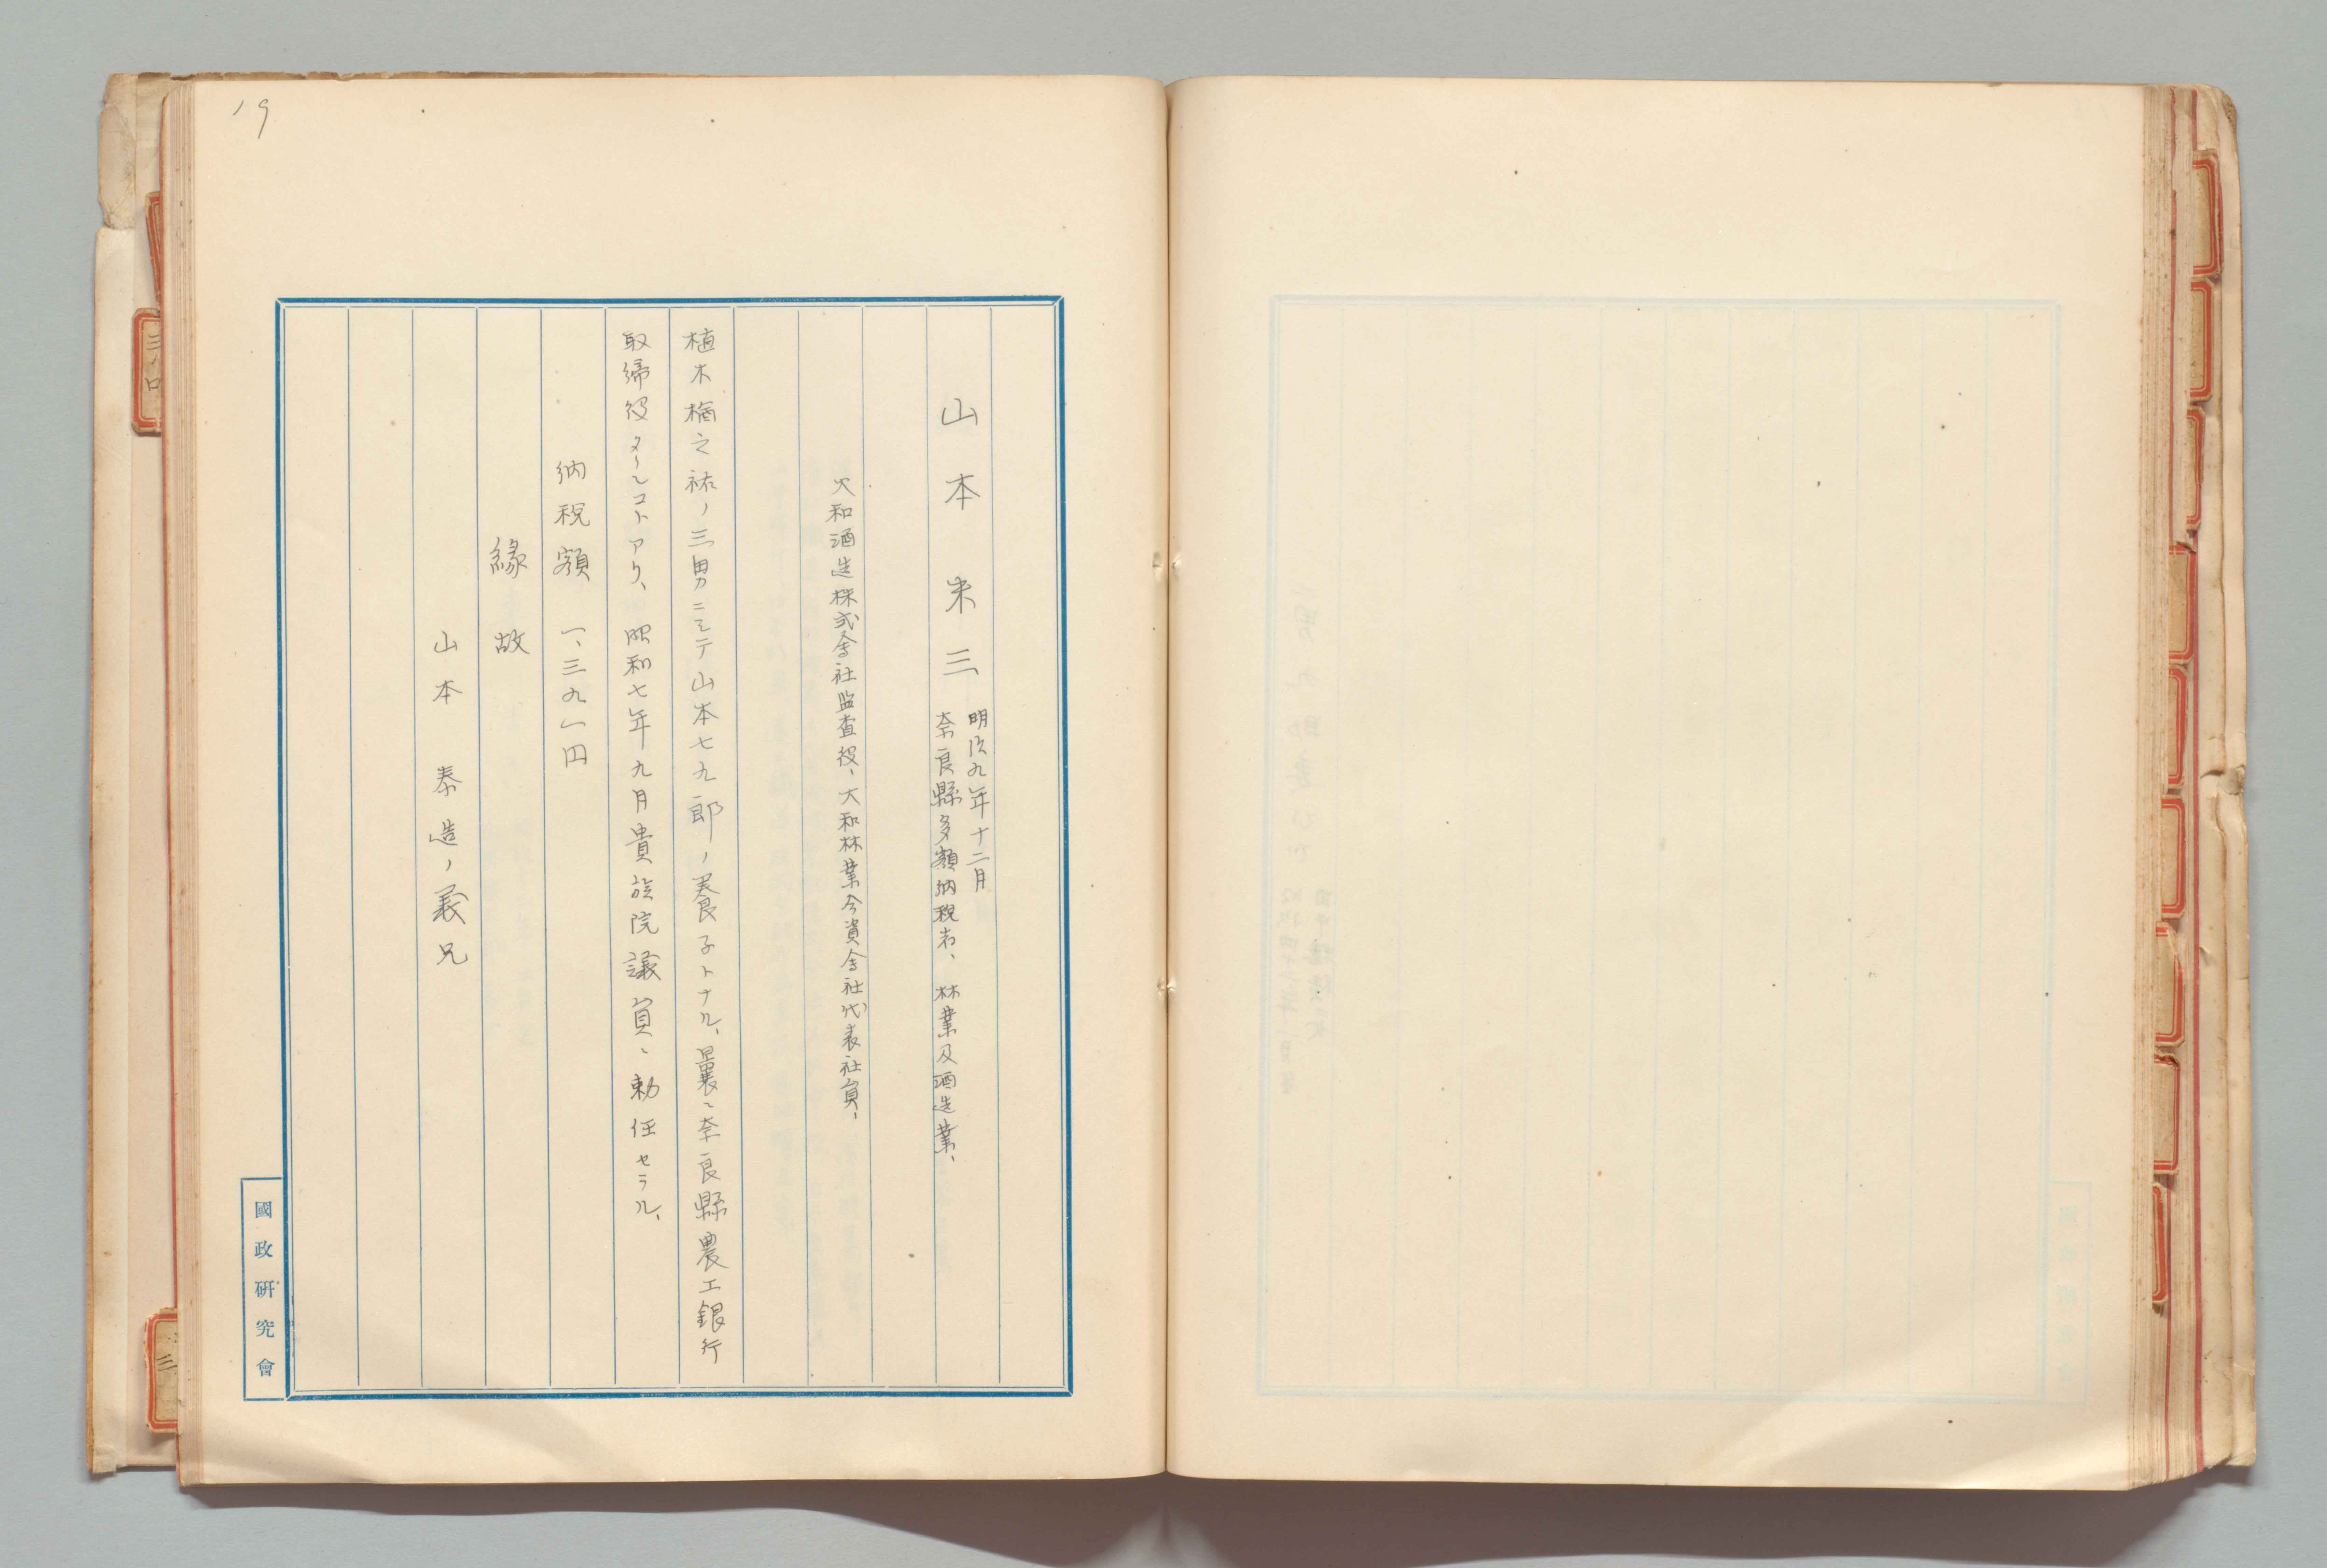 19
山本米三
明治九年十二月
奈良縣多額納税者、林業及酒造業、
大和酒造株式會社監査役、大和林業合資會社代表社員、
植木楢之祐ノ三男ニシテ山本七九郎ノ養子トナル、曩ニ奈良縣農工銀行
取締役タールコトアリ、昭和七年九月貴族院議員ニ勅任セラル、
納税額 一、三九一円
緣故
山本泰造ノ義兄
國政研究會